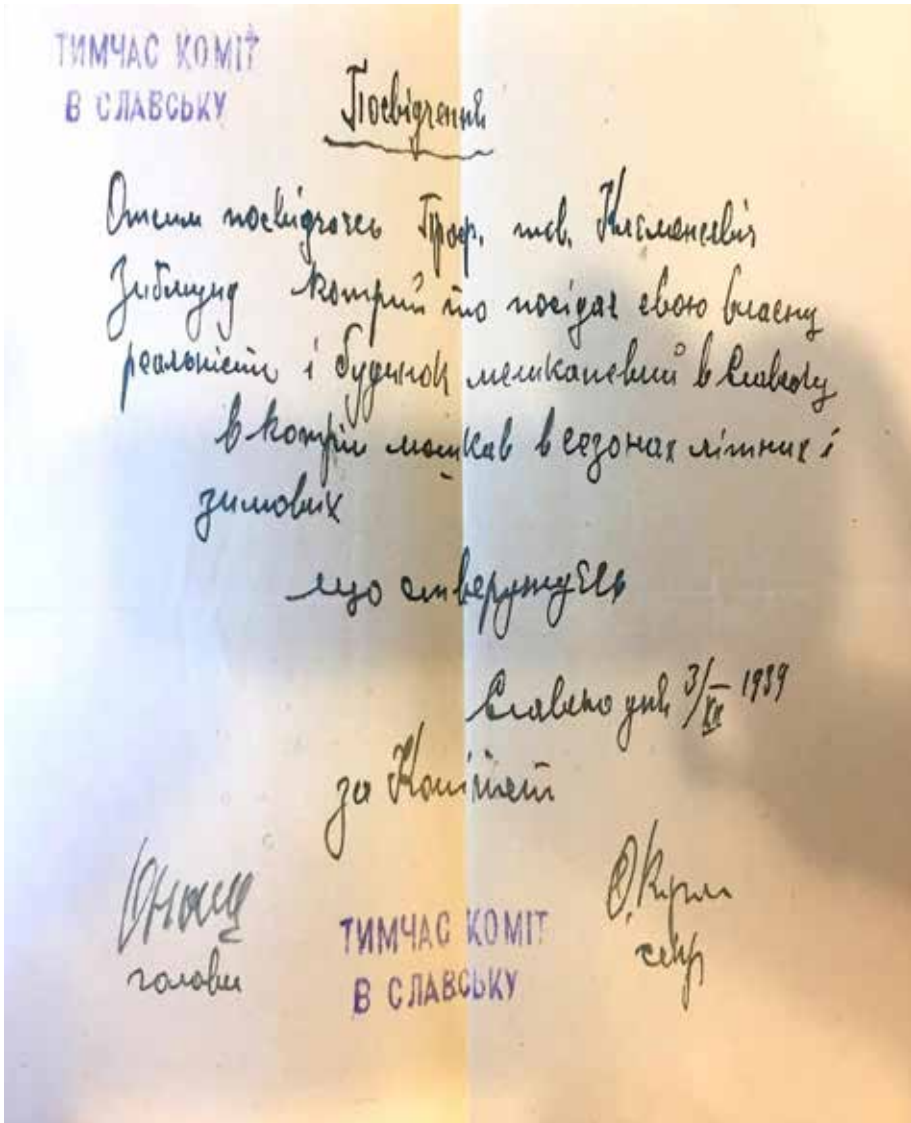 ТИМЧАС КОМІТ
В СЛАВСЬКУ
Посвідченнє
Отсим посвідчаєсь Проф. тов. Клєменсевіч
Зиґмунд котрий то посідає свою власну
реальність і будинок мешканевий в Славську
в котрім мешкав в сезонах літних і
зимових
що стверджуєсь
Славсько дня 3/XII 1939
за Комітет
голова
секр
ТИМЧАС КОМІТ
В СЛАВСЬКУ